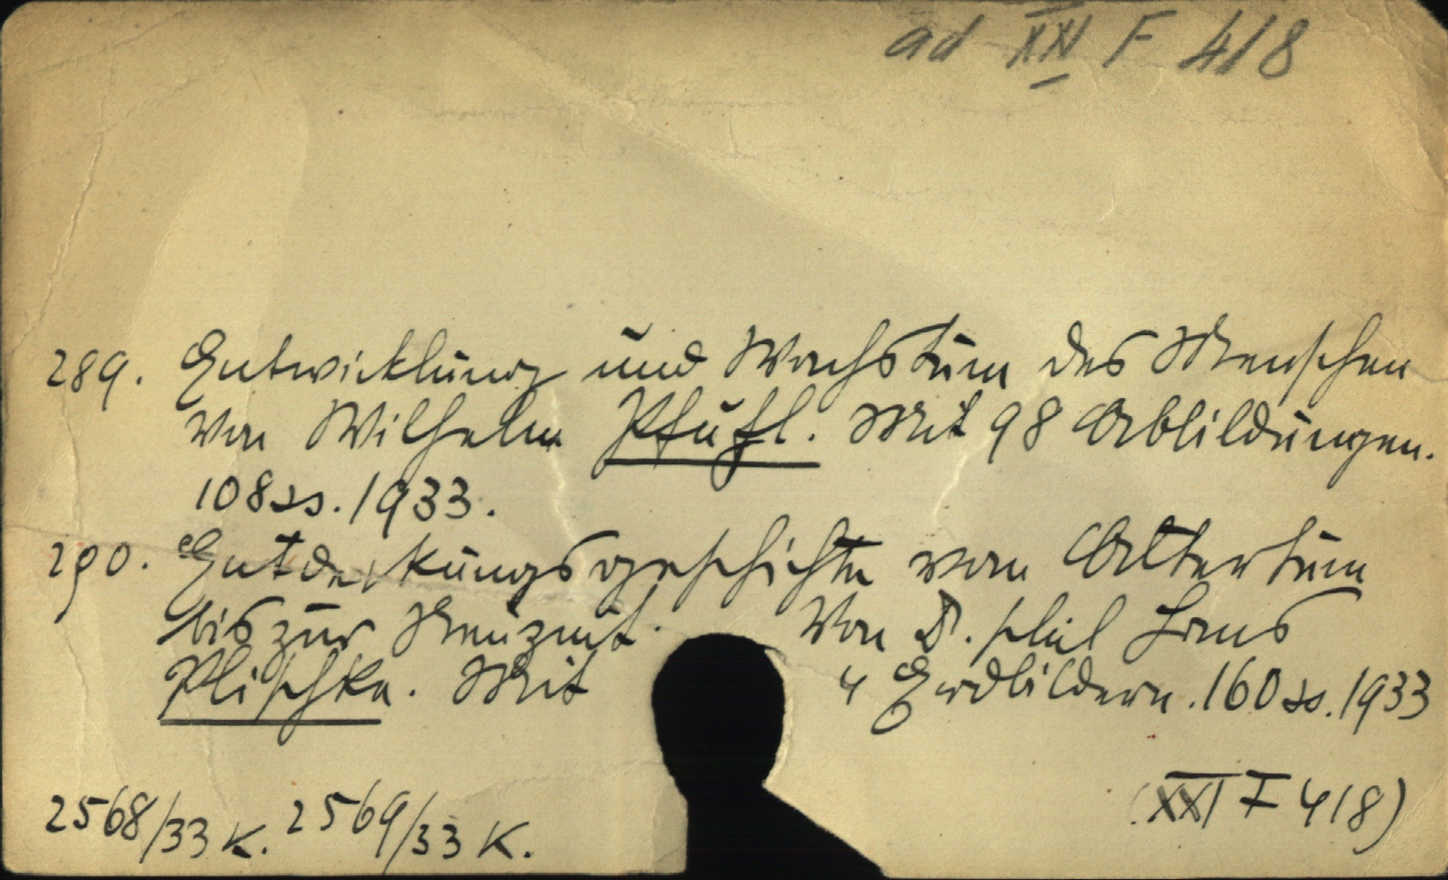 ad XXI F 418
289. Entwicklung und Wachstum des Menschen
Von Wilhelm Pfuhl. Mit 98 Abbildungen.
108 ss. 1933.
290. Entdeckungsgeschichte vom Altertum
bis zur Neuzeit. Von D. phil Hans
Plischke. Mit 4 Erdbildern. 160 ss. 1933
(XXI F 418)
2568/33 K. 2569/33 K.